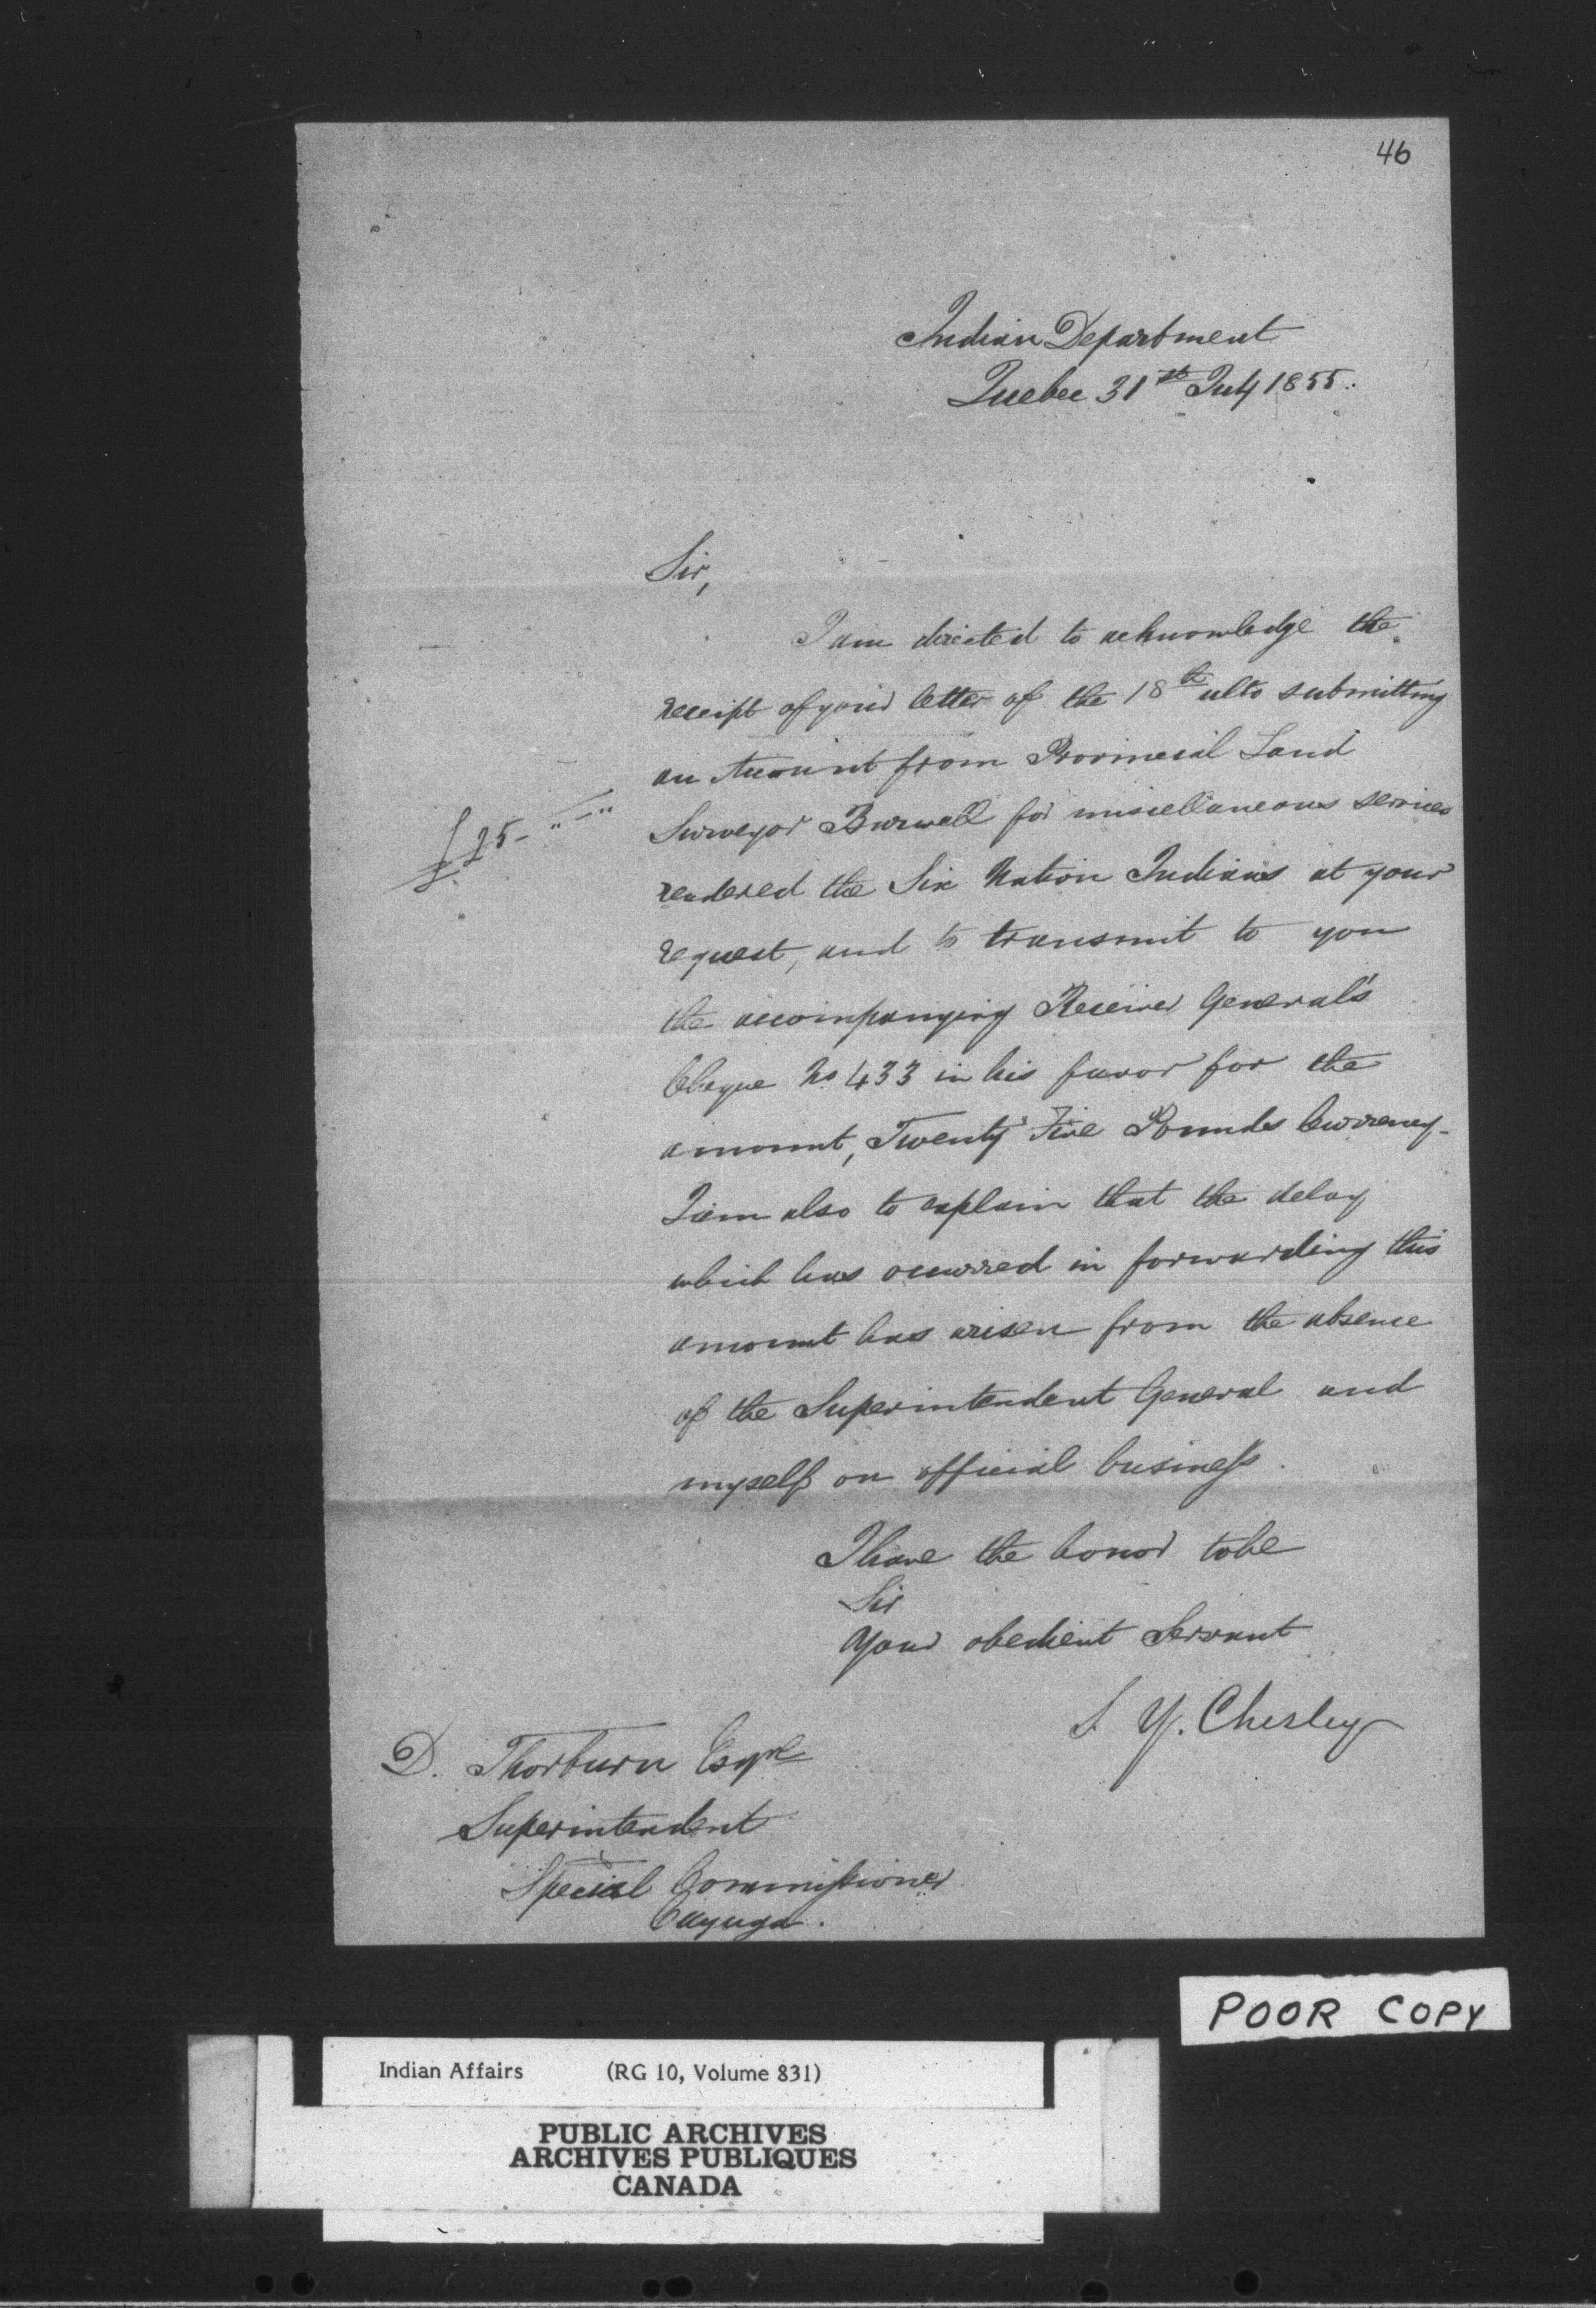 46
Indian Department
Quebec 31st July 1855.
Sir,
I am directed to acknowledge the
receipt of your letter of the 18th ulto submitting
an Account from Provincial Land
£25-"-"
Surveyor Burwell for miscellaneous services
rendered the Six Nation Indians at your
request, and to transmit to you
the accompanying Receiver General's
Cheque No 433 in his favor for the
amount, Twenty Five Pounds Currency-
I am also to explain that the delay
which has occurred in forwarding this
amount has arisen from the absence
of the Superintendent General and
myself on official business.
I have the honor to be
Sir
Your obedient Servant
S. Y. Chesley
D. Thorburn Esqre
Superintendent
Special Commissioner
Cayuga.
POOR COPY
Indian Affairs (RG 10, Volume 831)
PUBLIC ARCHIVES
ARCHIVES PUBLIQUES
CANADA